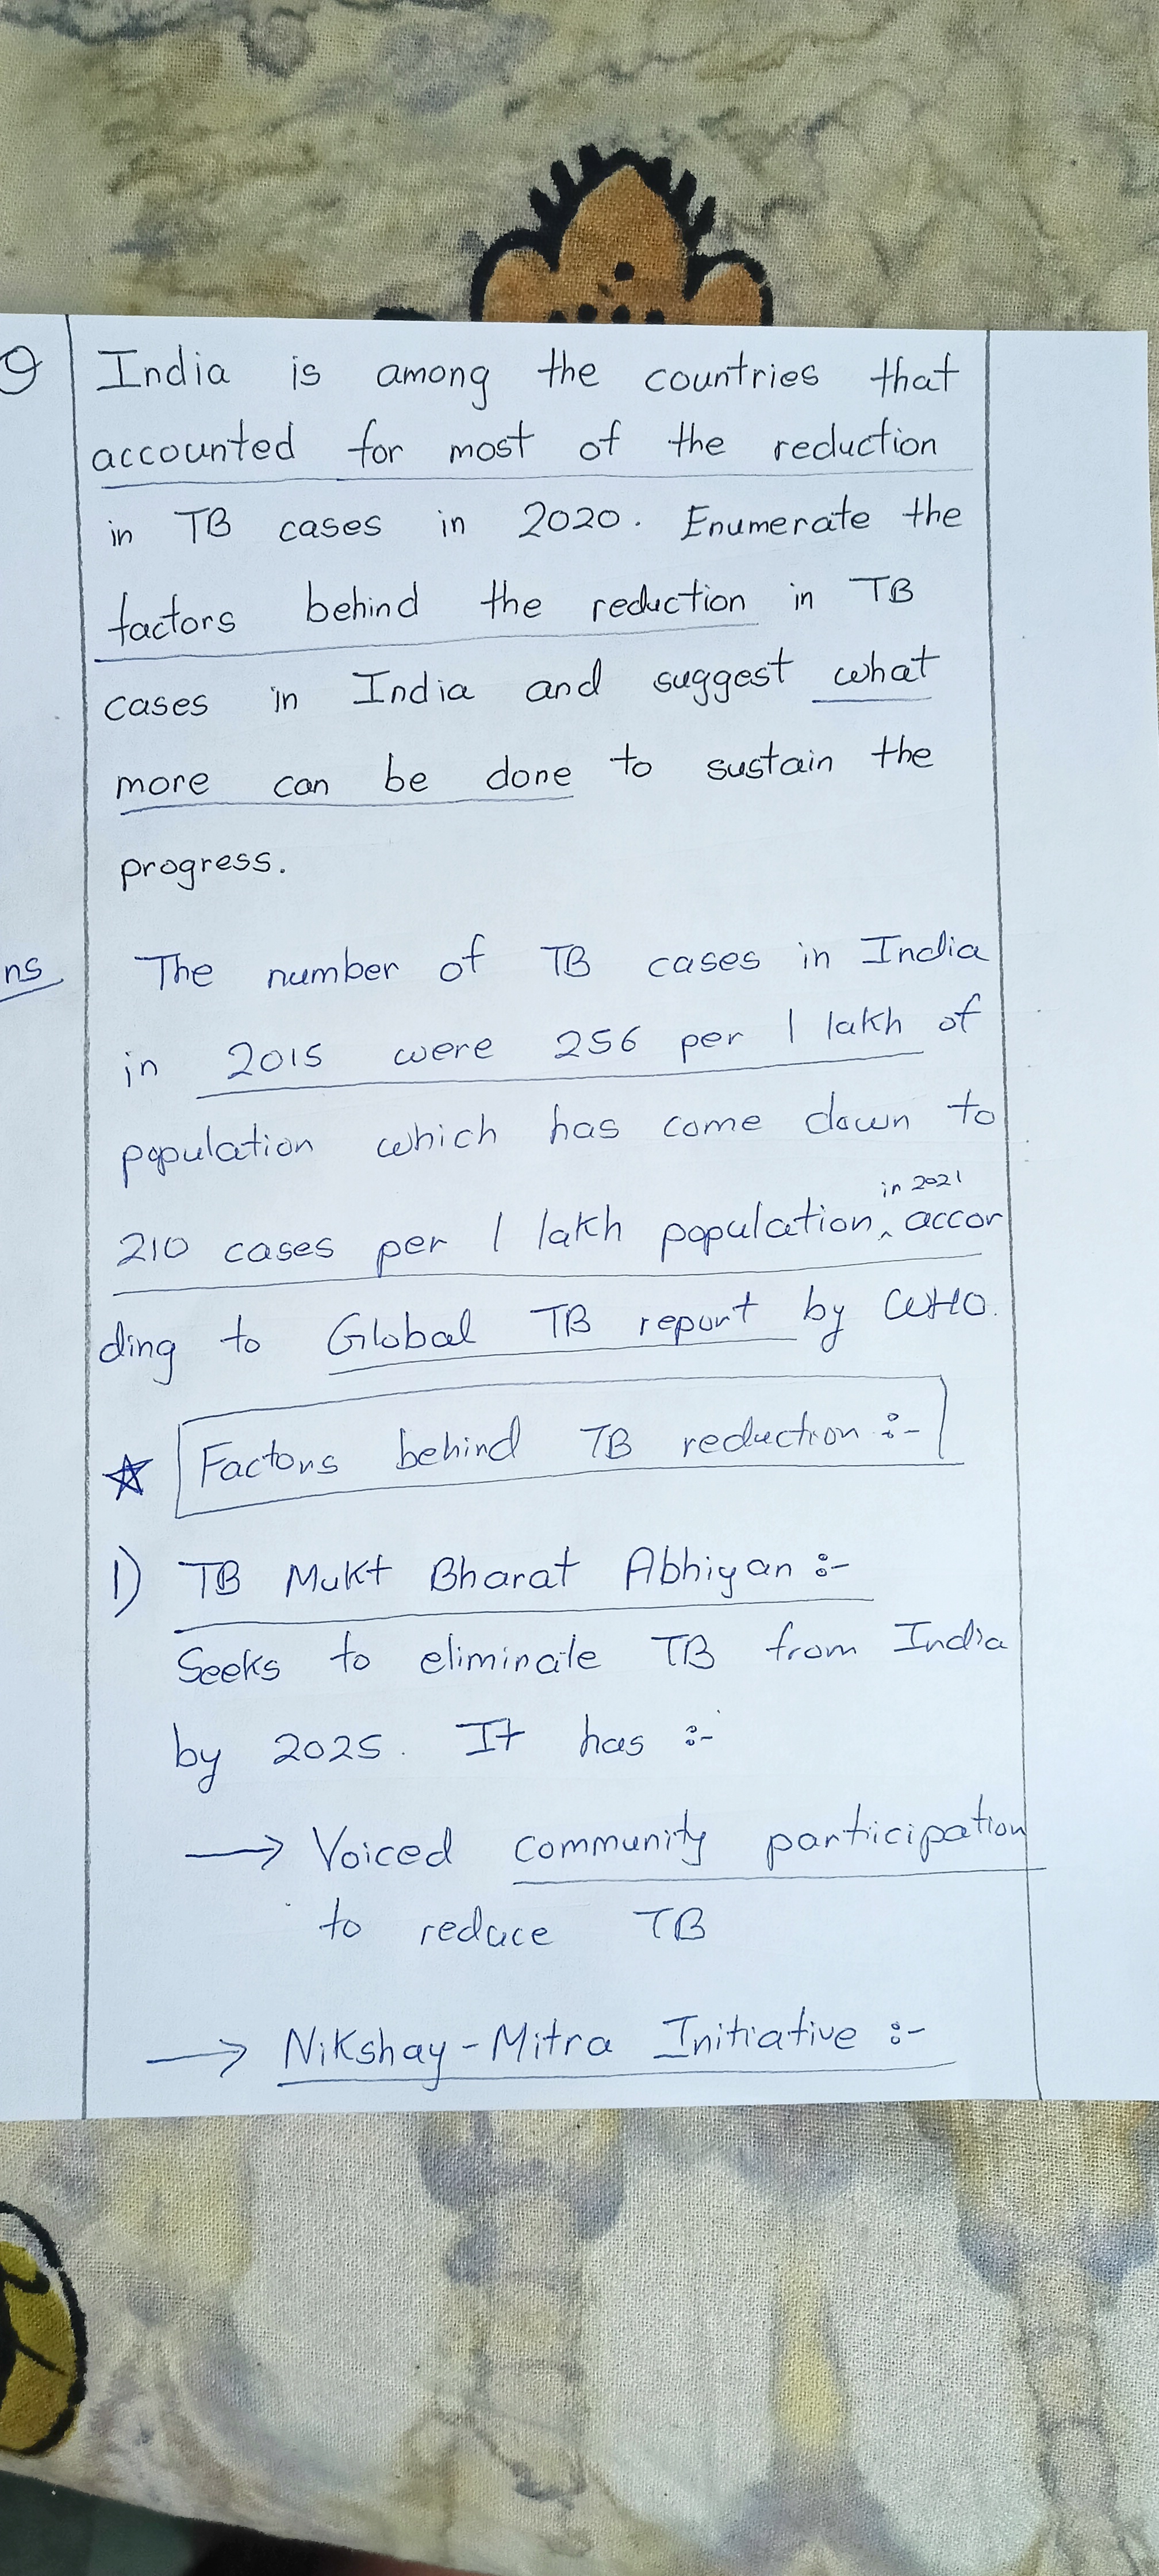 Q India is among the countries that
accounted for most of the reduction
in TB cases in 2020. Enumerate the
factors behind the reduction in TB
cases in India and suggest what
more can be done to sustain the
progress.
ns The number of TB cases in India
in 2015 were 256 per 1 lakh of
population which has come down to
in 2021
210 cases per 1 lakh population, accor
ding to Global TB report by WHO.
Factors behind TB reduction :-
1) TB Mukt Bharat Abhiyan :-
Seeks to eliminate TB from India
by 2025. It has :-
→ Voiced community participation
to reduce TB
→ Nikshay-Mitra Initiative :-